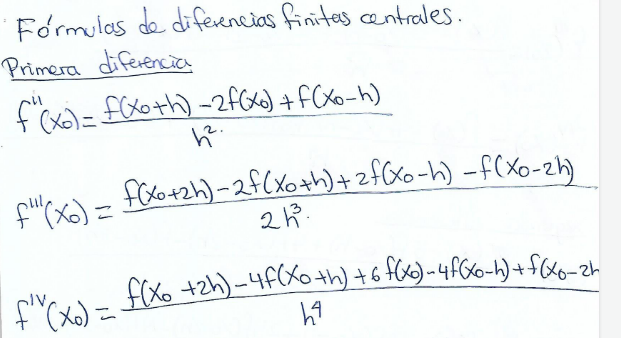 Fórmulas de diferencias finitas centrales.
Primera diferencia
f''(x₀) = f(x₀+h) - 2f(x₀) + f(x₀-h)
h².
f'''(x₀) = f(x₀+2h) - 2f(x₀+h) + 2f(x₀-h) - f(x₀-2h)
2h³.
f^IV(x₀) = f(x₀+2h) - 4f(x₀+h) + 6f(x₀) - 4f(x₀-h) + f(x₀-2h
h⁴